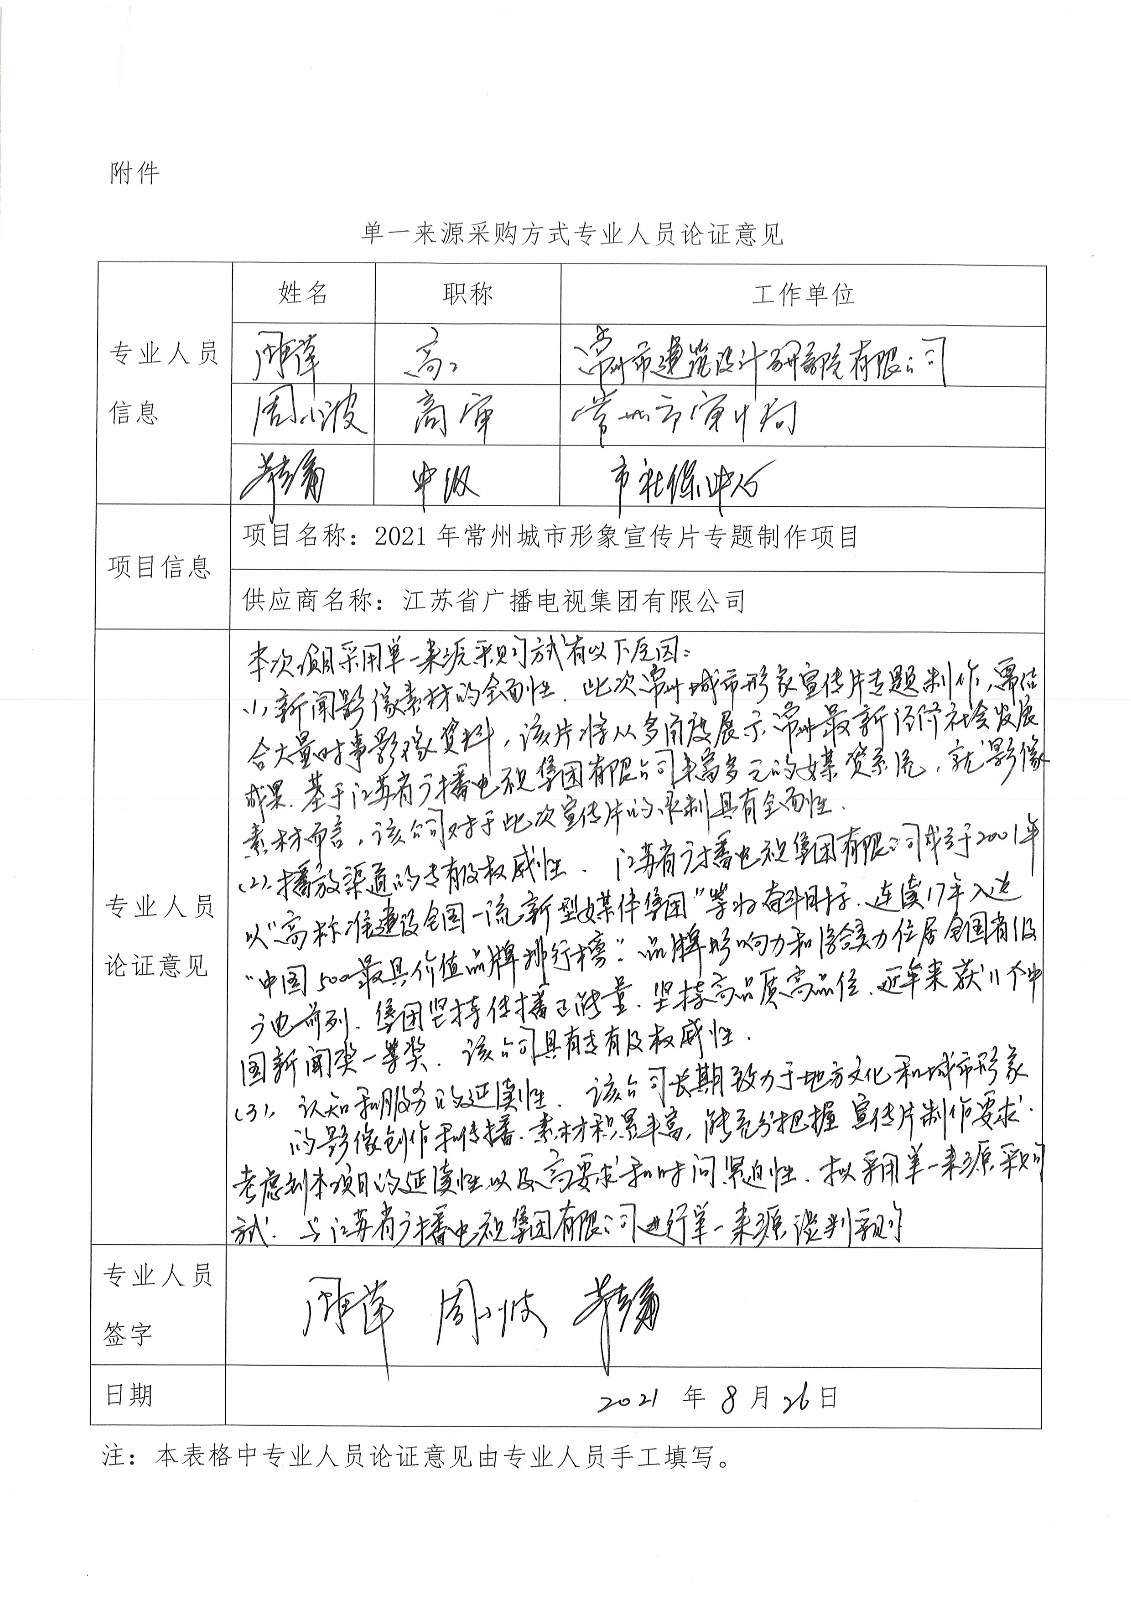 附件
单一来源采购方式专业人员论证意见
专业人员信息
姓名 职称 工作单位
高工 常州市建筑设计研究院有限公司
周小波 高审 常州市审计局
中级 市社保中心
项目信息
项目名称：2021年常州城市形象宣传片专题制作项目
供应商名称：江苏省广播电视集团有限公司
专业人员论证意见
本次项目采用单一来源采购方式有以下原因：
(1)、新闻影像素材的全面性．此次常州城市形象宣传片专题制作，需结
合大量时事影像资料，该片将从多角度展示常州最新经济社会发展
成果．基于江苏省广播电视集团有限公司丰富多元的媒资系统，就影像
素材而言，该公司对于此次宣传片的录制具有全面性．
(2)、播放渠道的专有及权威性．江苏省广播电视集团有限公司成立于2001年
以"高标准建设全国一流新型媒体集团"为奋斗目标．连续17年入选
"中国500最具价值品牌排行榜"．品牌影响力和综合实力位居全国省级
广电前列．集团坚持传播正能量．坚持高品质高品位．近年来获11个中
国新闻奖一等奖．该公司具有专有及权威性．
(3)、认知和服务的延续性．该公司长期致力于地方文化和城市形象
的影像创作和传播．素材积累丰富，能充分把握宣传片制作要求．
考虑到本项目的延续性以及高要求和时间紧迫性．拟采用单一来源采购
方式．与江苏省广播电视集团有限公司进行单一来源谈判采购
专业人员签字
周小波
日期
2021年8月26日
注：本表格中专业人员论证意见由专业人员手工填写。